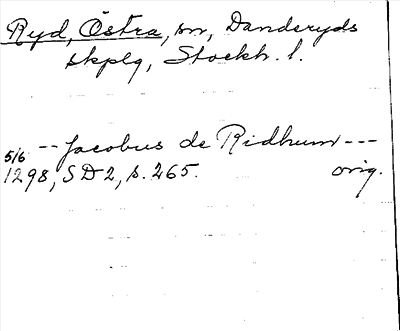 Ryd, Östra, sn, Danderyds
skplg, Stockh. l.
5/6 -- Jacobus de Ridhum ---
1298, SD 2, s. 265. orig.